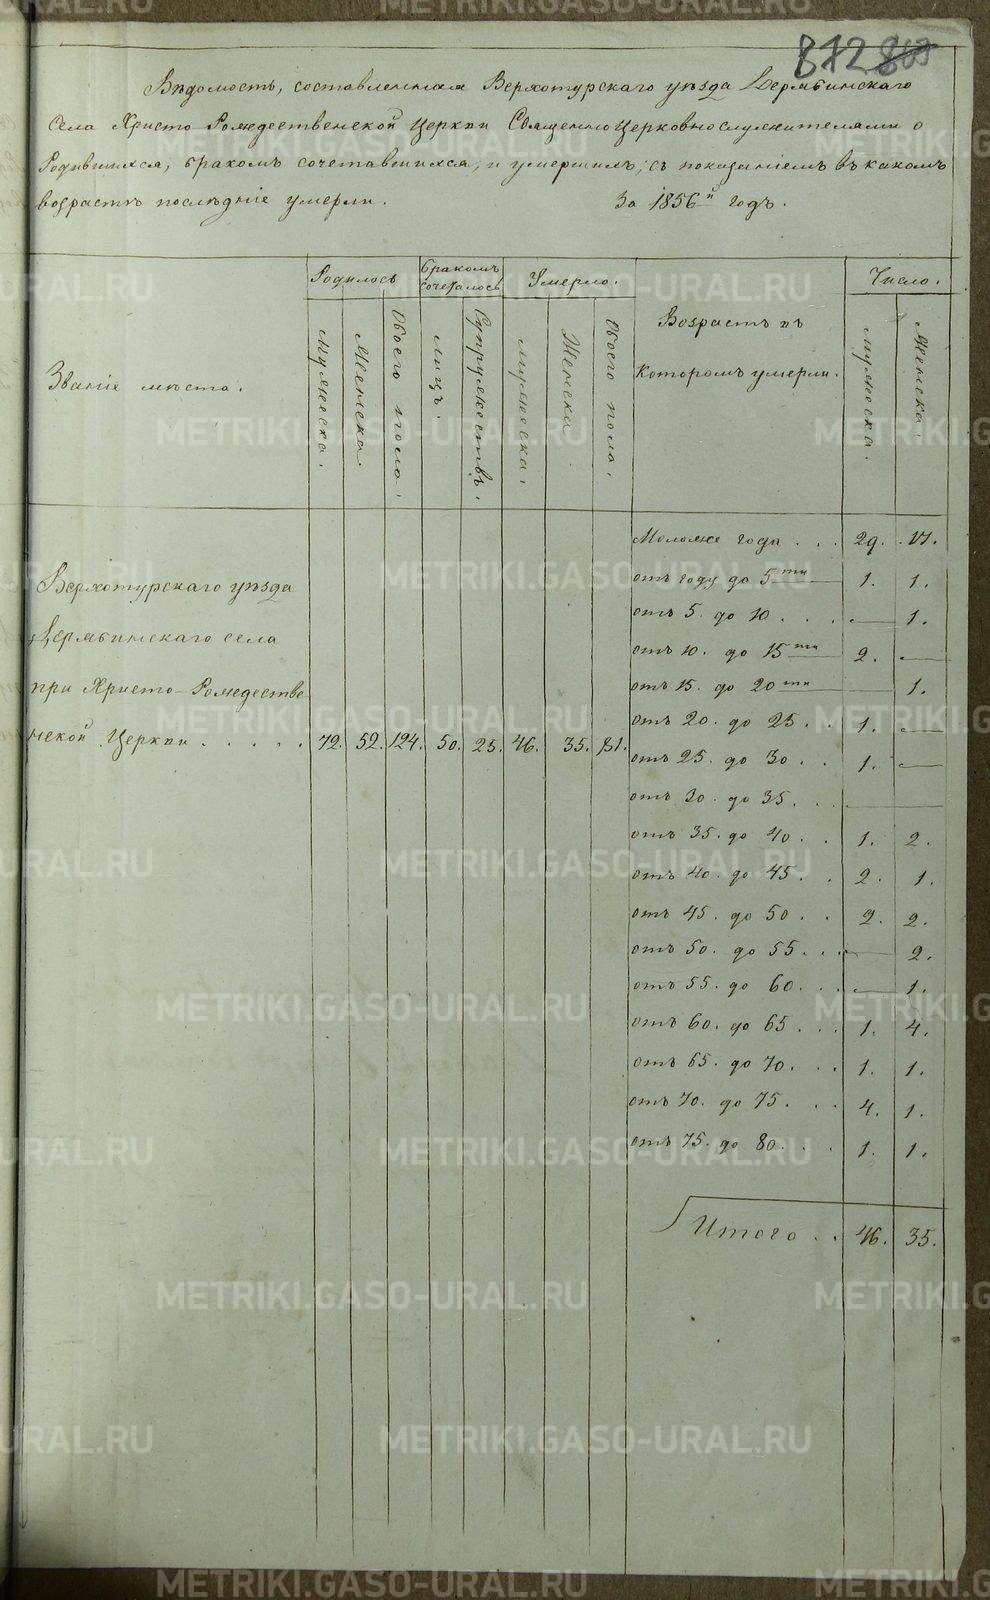 872 869
Вѣдомость, составленная Верхотурскаго уѣзда Дерябинскаго
Села Христо-Рождественской Церкви Священноцерковнослужителями о
Родившихся, бракомъ сочетавшихся, и умершихъ, съ показаніемъ въ какомъ
возрастѣ послѣдніе умерли. За 1856й годъ.
Званіе мѣста. Родилось Бракомъ сочеталось Умерло. Возрастъ въ Которомъ умерли. Число.
Мужеска. Женска. Обоего пола. Лицъ. Супружествъ. Мужеска. Женска Обоего пола. Мужеска. Женска.
Моложе года . . . 29. 17.
отъ году до 5ти 1. 1.
отъ 5. до 10 . . . . — 1.
отъ 10. до 15ти 2. —
отъ 15. до 20ти — 1.
отъ 20. до 25. . . 1. —
отъ 25. до 30 . . 1. —
отъ 30. до 35. . . — —
отъ 35. до 40. . . 1. 2.
отъ 40. до 45. . . 2. 1.
отъ 45. до 50 . . 2. 2.
отъ 50. до 55. . . — 2.
отъ 55. до 60. . . — 1.
отъ 60. до 65. . . 1. 4.
отъ 65. до 70. . . 1. 1.
отъ 70. до 75. . . 4. 1.
отъ 75. до 80. . . 1. 1.
Итого . . 46. 35.
Верхотурскаго уѣзда
Дерябинскаго села
при Христо-Рождестве
нской Церкви . . . . . 72. 52. 124. 50. 25. 46. 35. 81.
METRIKI.GASO-URAL.RU